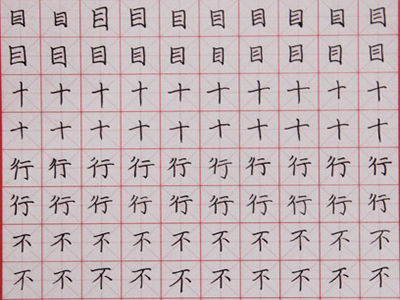 目目目目目目目目目目
目目目目目目目目目目
十十十十十十十十十十
十十十十十十十十十十
行行行行行行行行行行
行行行行行行行行行行
不不不不不不不不不不
不不不不不不不不不不